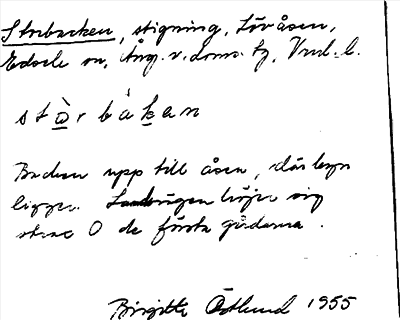 Storbacken, stigning, Lövåsen,
Edsele sn, Ång. v. doms. tg, Vnl. l.
stò̱rbàḵan
Backen upp till åsen, där byn
ligger. höjer sig
strax O de första gårdarna.
Birgitta Östlund 1955